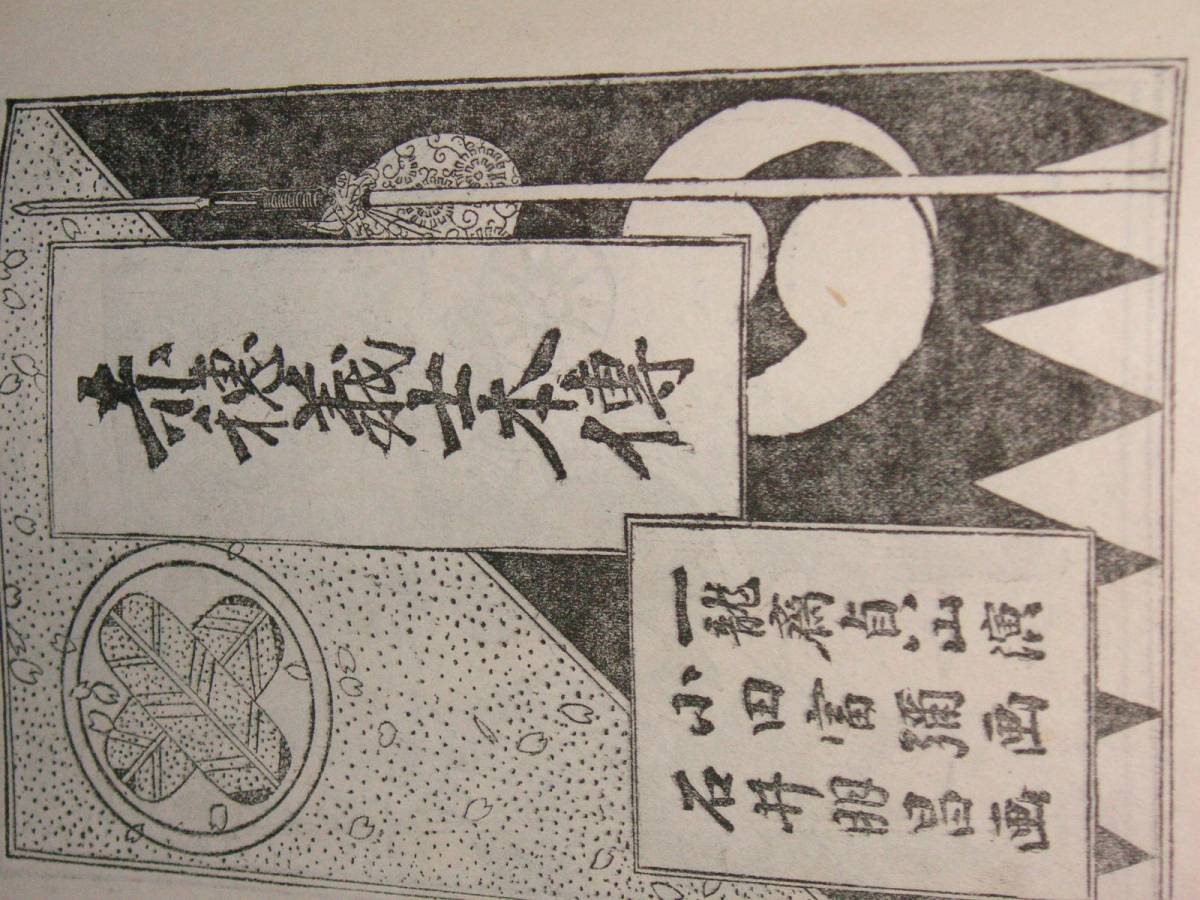 赤穂義士本傳
一龍齋貞山演
小田富彌画
石井朋昌画